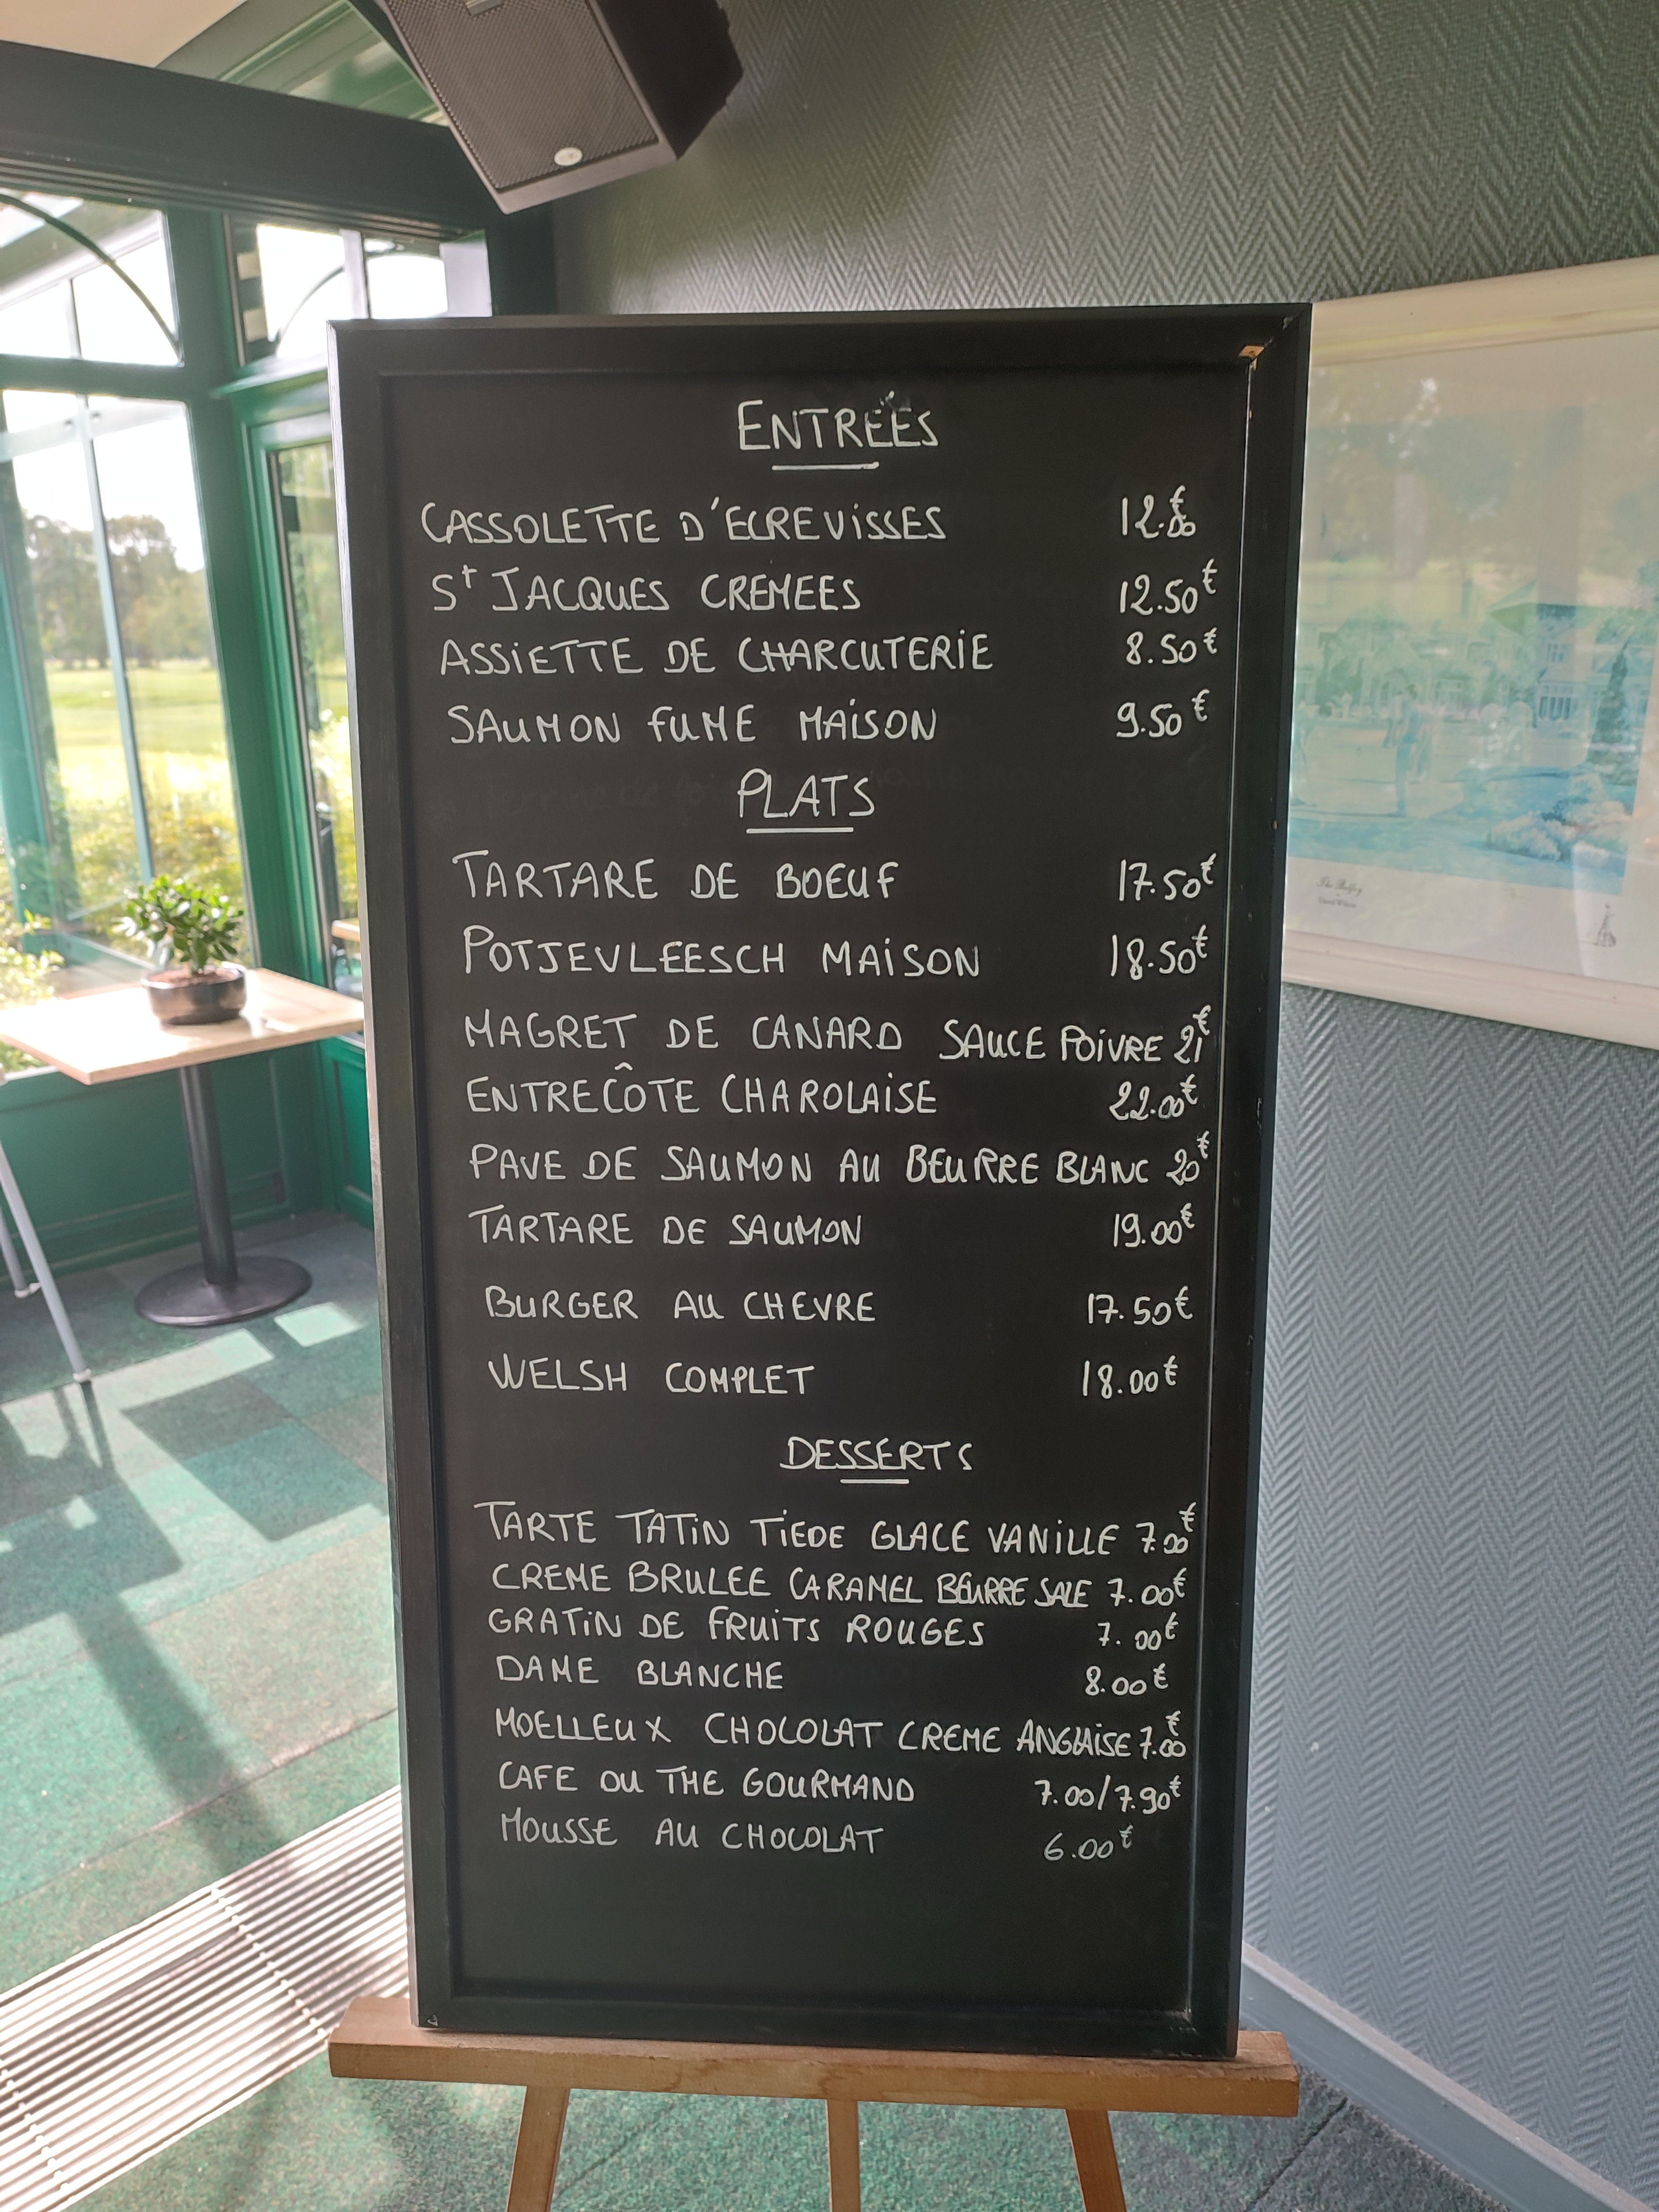 ENTRÉES
CASSOLETTE D'ECREVISSES 12.50€
St JACQUES CREMEES 12.50€
ASSIETTE DE CHARCUTERIE 8.50€
SAUMON FUME MAISON 9.50€
PLATS
TARTARE DE BOEUF 17.50€
POTJEVLEESCH MAISON 18.50€
MAGRET DE CANARD SAUCE POIVRE 21€
ENTRECÔTE CHAROLAISE 22.00€
PAVE DE SAUMON AU BEURRE BLANC 20€
TARTARE DE SAUMON 19.00€
BURGER AU CHEVRE 17.50€
WELSH COMPLET 18.00€
DESSERTS
TARTE TATIN TIEDE GLACE VANILLE 7.00€
CREME BRULEE CARAMEL BEURRE SALE 7.00€
GRATIN DE FRUITS ROUGES 7.00€
DAME BLANCHE 8.00€
MOELLEUX CHOCOLAT CREME ANGLAISE 7.00€
CAFE OU THE GOURMAND 7.00/7.90€
MOUSSE AU CHOCOLAT 6.00€
The Belfry